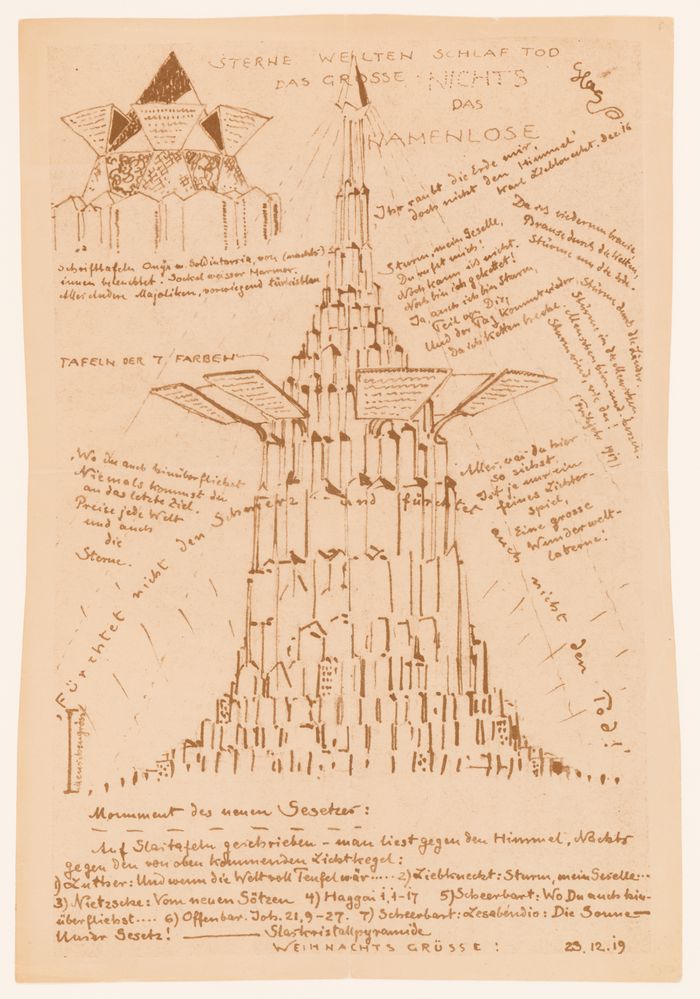 STERNE WELTEN SCHLAF TOD
DAS GROSSE NICHTS
DAS
NAMENLOSE
Glas
'Ihr raubt die Erde mir,
doch nicht den Himmel'
Karl Liebknecht. Dez 16
Sturm, mein Geselle,
Du rufst mich!
Noch kann ich nicht.
Noch bin ich gekettet!
Ja auch ich bin Sturm,
Teil von Dir,
Und der Tag kommt wieder,
da ich Ketten breche.
Da ich wiederum brause,
Brause durch die Weiten,
Stürme um die Erde.
Stürme durch die Länder.
Stürme in die Menschen,
Menschenhirn und -herzen.
Sturmwind, wie du!
(Frühjahr 1917)
Schrifttafeln Onyx m. Goldintarsia, von (nachts)
innen beleuchtet. Sockel weisser Marmor.
Alles Andere Majoliken, vorwiegend türkisblau
TAFELN DER 7 FARBEN
'Wo Du auch hinüberfliehst
Niemals kommst du
an das letzte Ziel.
Preise jede Welt
und auch
die
Sterne.
Alles, was du hier
so siehst,
Ist ja nur ein
feines Lichter-
spiel,
Eine grosse
Wunderwelt-
laterne!
'Fürchtet nicht den Schmerz - und fürchtet auch nicht den Tod!'
Menschengrösse
Monument des neuen Gesetzes:
Auf Glastafeln geschrieben - man liest gegen den Himmel, Nachts
gegen den von oben kommenden Lichtkegel:
1) Luther: Und wenn die Welt voll Teufel wär .... 2) Liebknecht: Sturm, mein Geselle ...
3) Nietzsche: Vom neuen Götzen 4) Haggai i, 1-17 5) Scheerbart: Wo Du auch hin-
überfliehst .... 6) Offenbar. Joh. 21, 9-27. 7) Scheerbart: Lesabéndio: Die Sonne—
Unser Gesetz! —— Glaskristallpyramide
WEIHNACHTS GRÜSSE : 23.12.19